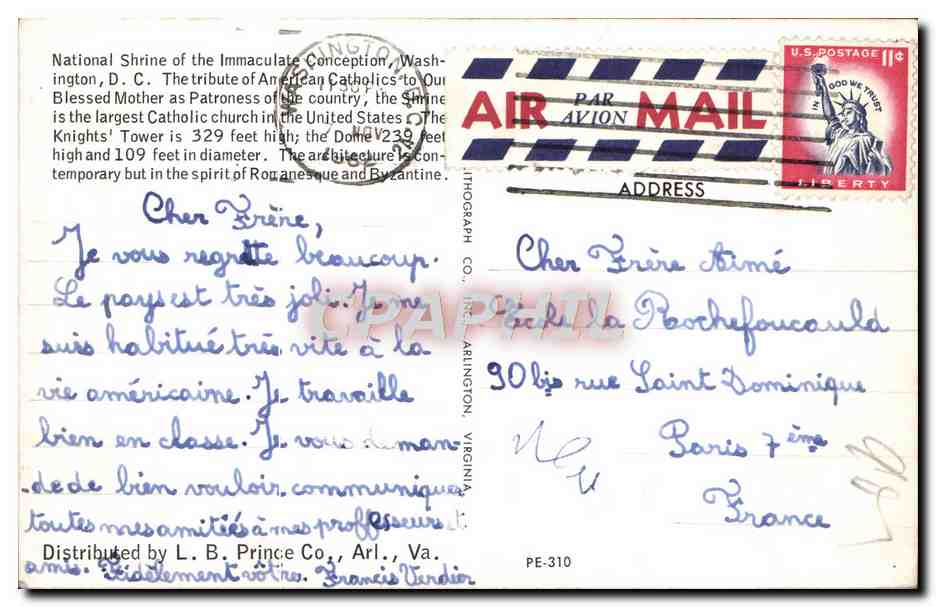 National Shrine of the Immaculate Conception, Wash-
ington, D. C. The tribute of American Catholics to Our
Blessed Mother as Patroness of the country, the Shrine
is the largest Catholic church in the United States. The
Knights' Tower is 329 feet high; the Dome 239 feet
high and 109 feet in diameter. The architecture is con-
temporary but in the spirit of Romanesque and Byzantine.
Cher Frère,
Je vous regrette beaucoup.
Le pays est très joli. Je me
suis habitué très vite à la
vie américaine. Je travaille
bien en classe. Je vous deman-
de de bien vouloir communiquer
toutes mes amitiés à mes proffesseurs et
amis. Fidèlement vôtre. Francis Verdier
Distributed by L. B. Prince Co., Arl., Va.
LITHOGRAPH CO., INC., ARLINGTON, VIRGINIA
WASHINGTON
NOV
AIR PAR AVION MAIL
U.S. POSTAGE 11¢
IN GOD WE TRUST
LIBERTY
ADDRESS
Cher Frère Aimé
Ecole la Rochefoucauld
90 bis rue Saint Dominique
Paris 7ème
France
PE-310
CPAPHIL